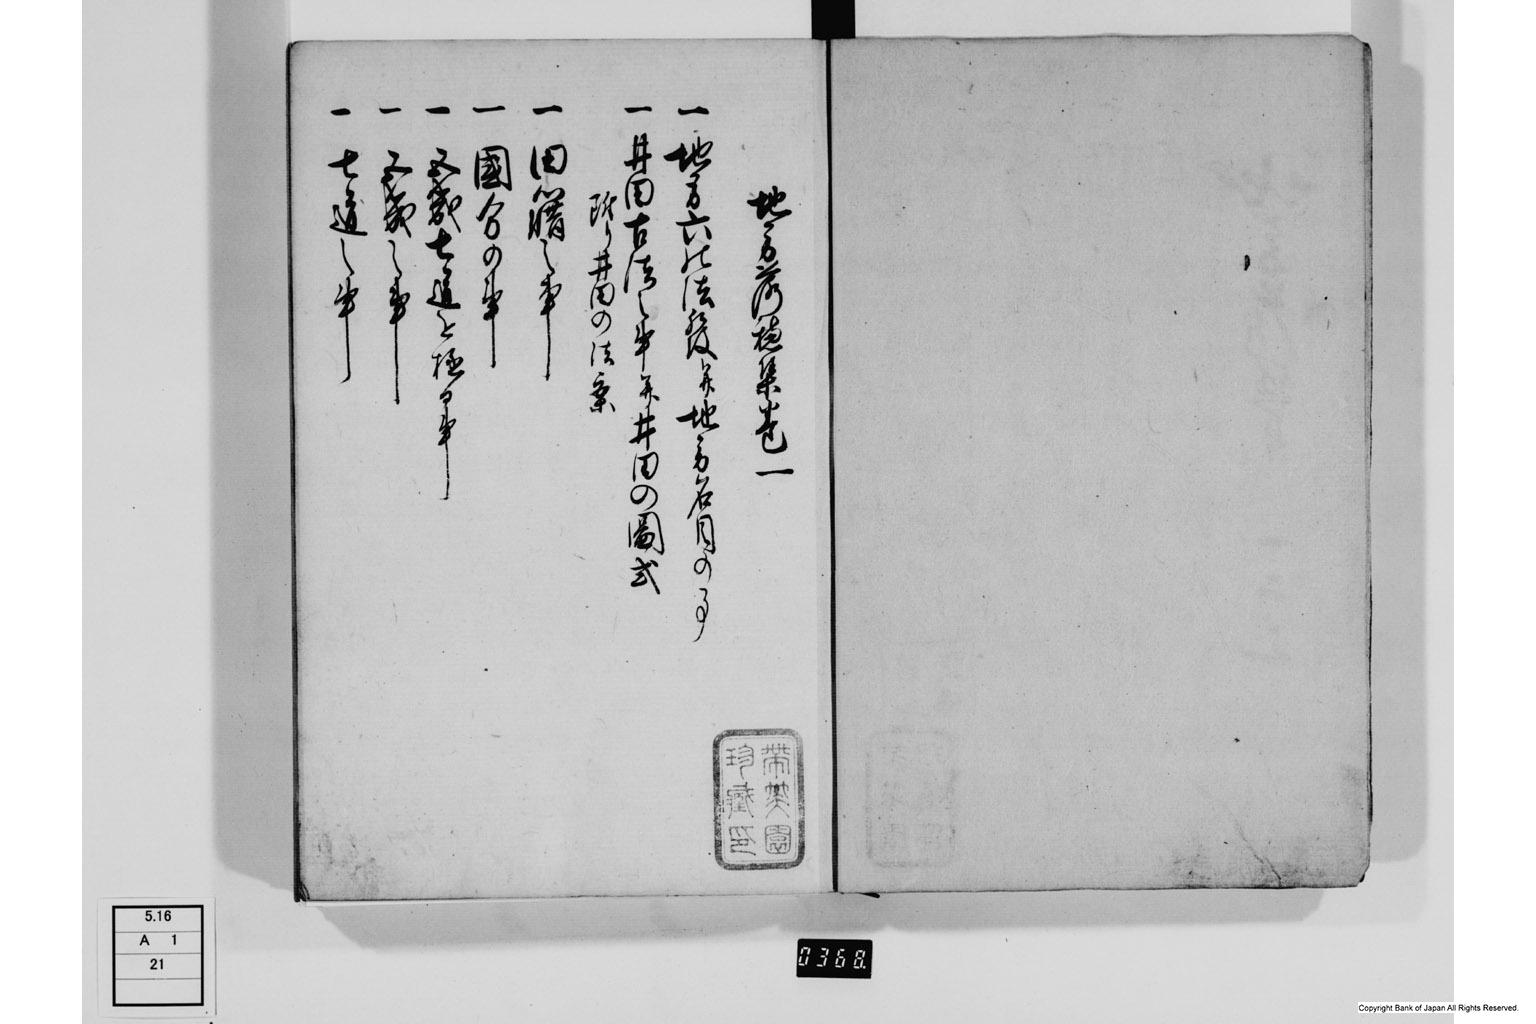 地方落穂集巻一
一 地方六の法発并地方名目の事
一 井田古法之事并井田の圖式
附り井田の法案
一 田籍之事
一 國分の事
一 五畿七道と極る事
一 五畿之事
一 七道之事
帯葉園
珍蔵印
5.16
A 1
21
0368.
Copyright Bank of Japan All Rights Reserved.